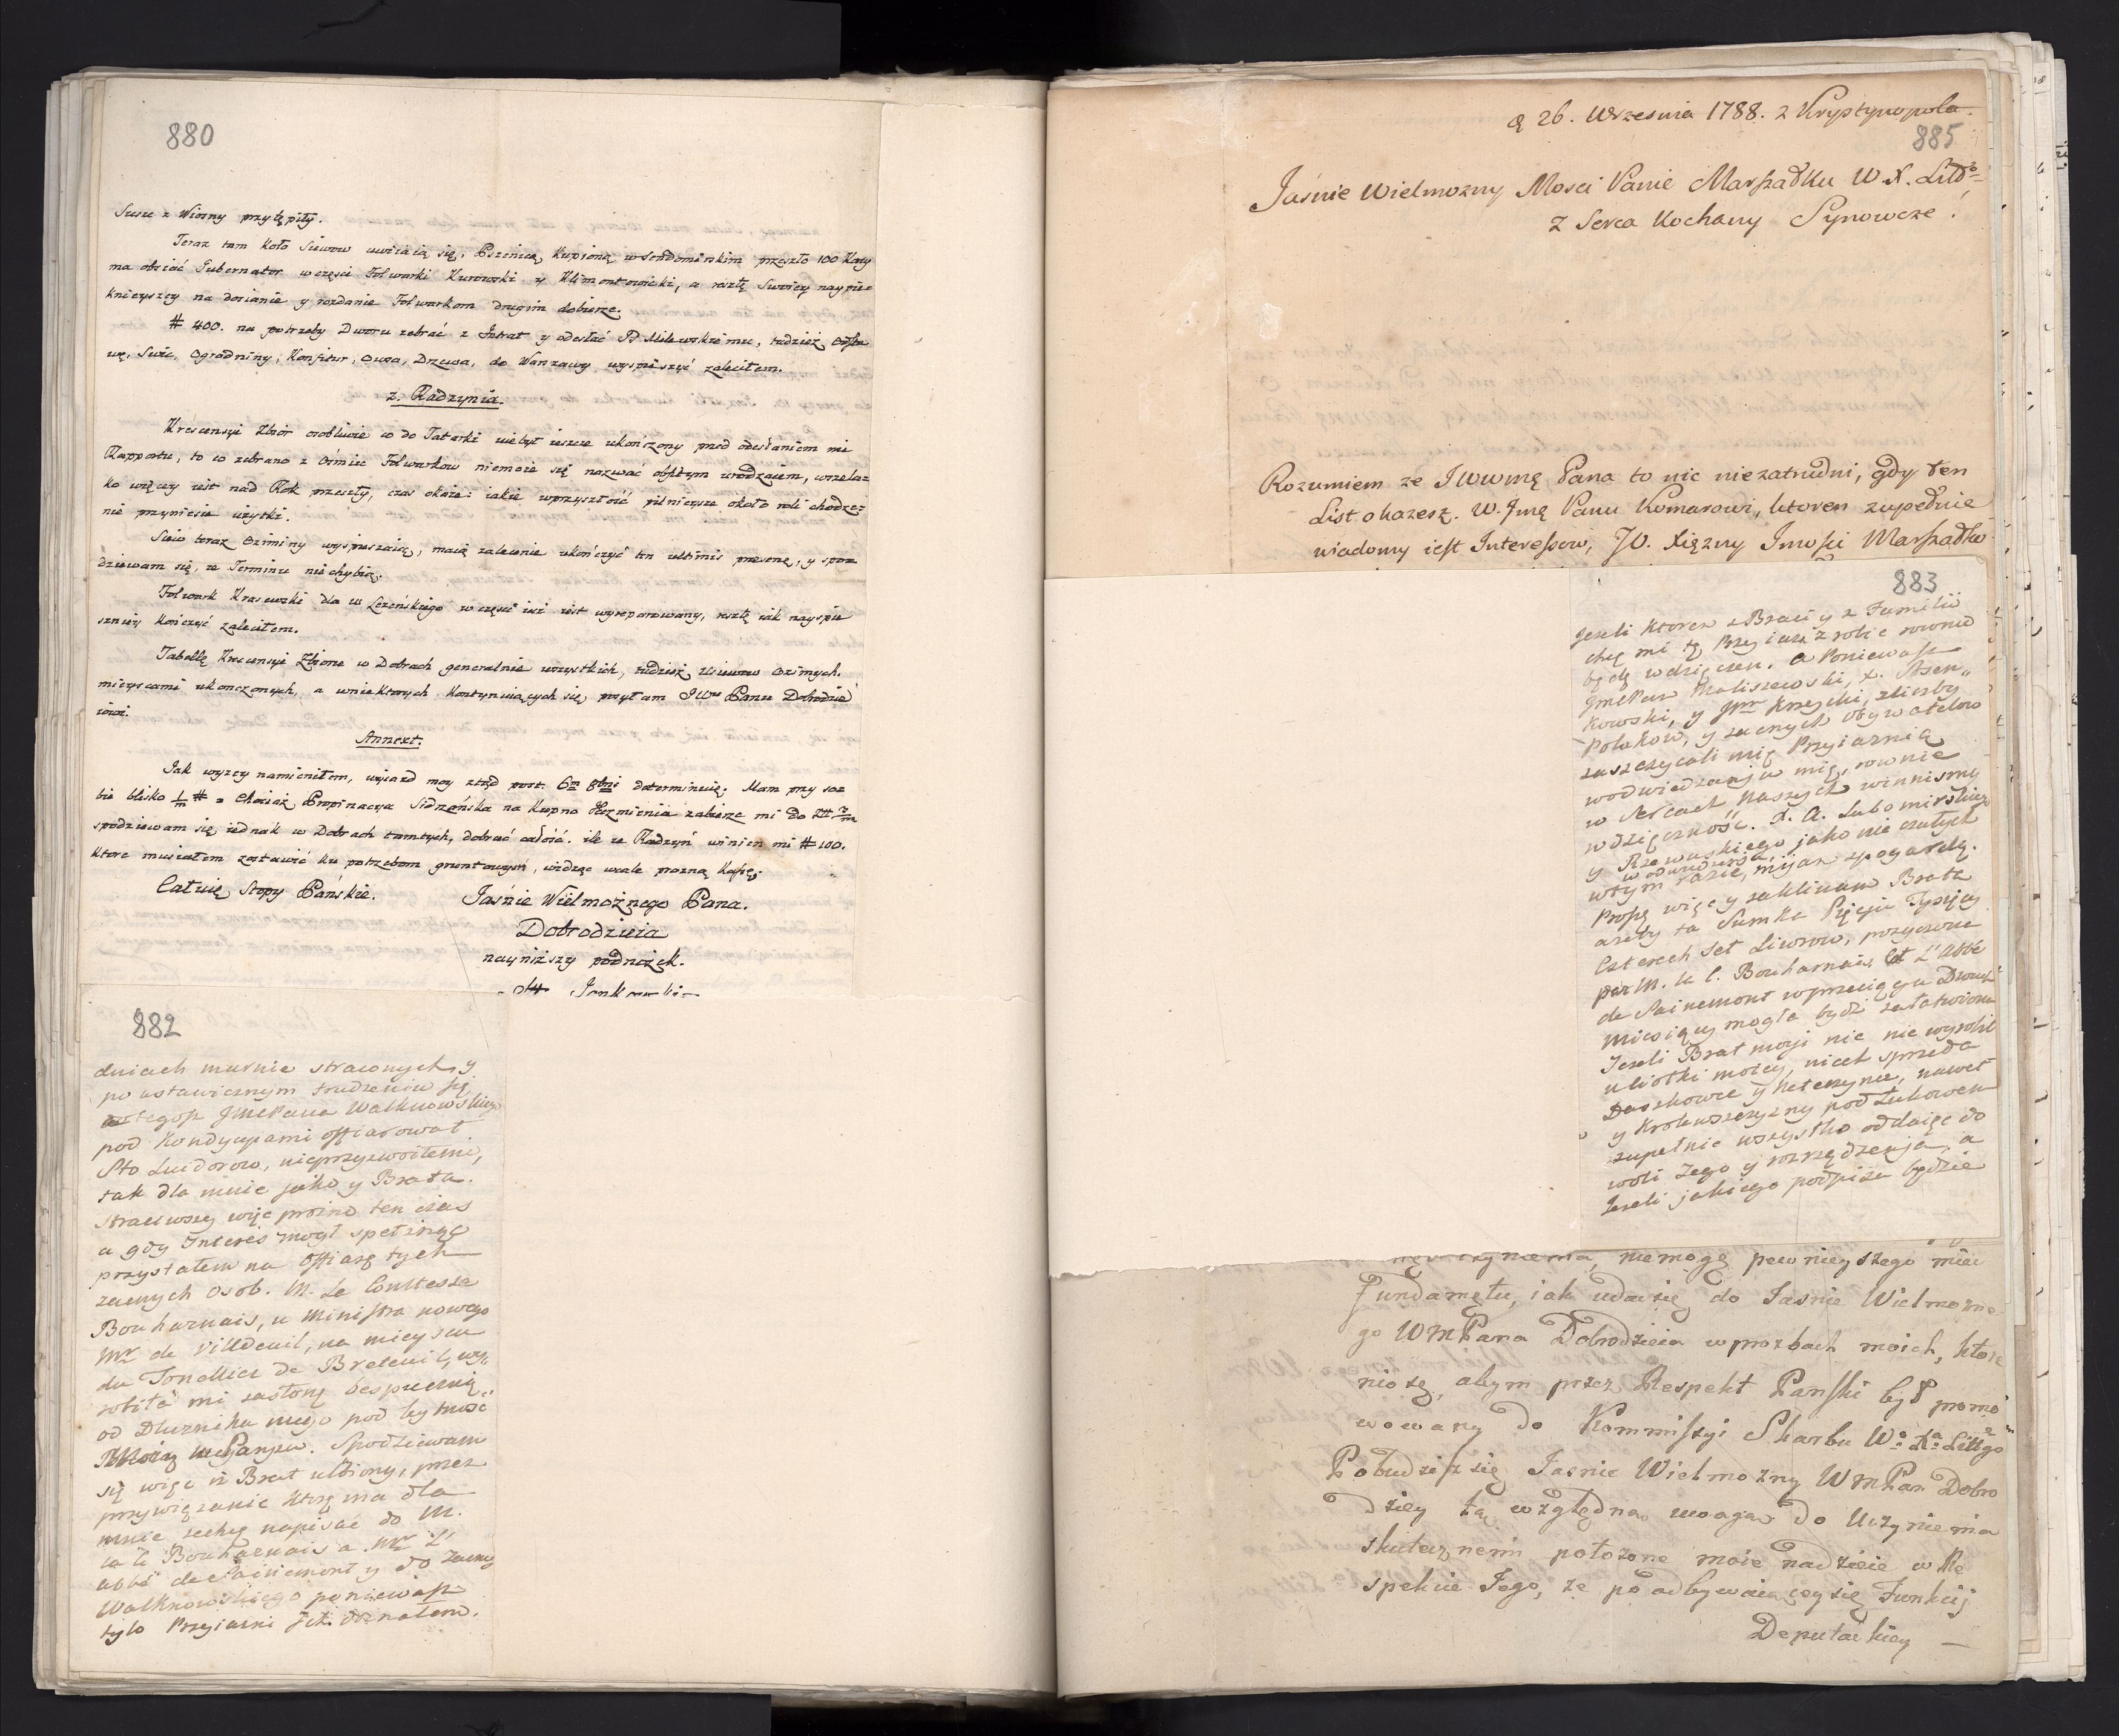 880
Susu z Wiosny przytępiły.
Teraz tam koło Siewow uwiiaią się, Pszenicą kupioną w Sendomirskim przeszło 100 Kory
ma obsiać Gubernator w części Folwarki Kurowski y Klimontowicki, a resztę Swoiey naypię=
knieyszey na dosianie y rozdanie Folwarkom drugim dobierze.
# 400. na potrzeby Dworu zebrać z Intrat y odesłać P. Milewskiemu, tudzież
wę, Swic, Ogrodniny, Konfitur, Owsa, Drzewa, do Warszawy wyspieszyć zaleciłem.
z Radzynia.
Krescensyi Zbiór osobliwie co do Tatarki nie był ieszcze ukończony pred odesłaniem mi
Rapportu, to co zebrano z Ośmiu Folwarkow niemoże się nazwać obfitym urodzaiem, wszelaz
ko więcey iest nad Rok przeszły, czas okaże: iakie w przyszłość pilnieysze około roli chodze=
nie przyniesie użytki.
Siew teraz Oziminy wyspieszaiąc, maią zalecenie ukończyć ten ultimis praesent, y spo=
dziewam się, że Terminu nie chybią.
Folwark Krasewski dla W Lezeńskiego w części iuż iest wyreparowany, resztę iak nayspie
szniey kończyć zaleciłem.
Tabellę Krescensyi Zbione w Dobrach generalnie wszystkich, tudzież Usiewow Ozimych.
mieyscami ukonczonych, a wniektorych kontynuiących się, przyłam JWmu Panu Dobrodzie
iowi.
Annext.
Jak wyzey namieniłem, wyiazd moy ztąd post. 6m 8bris determinuię. Mam przy so=
bie blisko 1/m # = Chociaż Propinacya Sidrańska na Kupno Jęzmienia zabierze mi do
spodziewam się iednak w Dobrach tamtych, dobrać całość. ile ze Radzyń winien mi # 100.
ktore musiałem zostawić ku potrzebom gruntowym, widząc wcale prozną Kassę.
Całuię Stopy Pańskie.
Jaśnie Wielmożnego Pana.
Dobrodzieia
nayniższy podnożek.
882
dniach marnie straconych, y
po ustawicznym trudzeniu się
tegoż JmePana Walknowskiego
pod Kondycyiami offiarował
Sto Luidorow, nieprzyzwoitemi,
tak dla mnie jako y Brata.
Straciwszy więc prozno ten czas
a gdy Interes mogł spełznąć
przystałem na Offiarę tych
zacnych Osob. M. Le Comtesse
Bouharnais, u Ministra nowego
Mr de Villdeuil, na mieyscu
du Tonellier de Breteuil, wy„
robiła mi zasłonę bespieczną
od Dłuznika mego pod bytność
Spodziewam
się więc iż Brat ulubiony, przez
przywiązanie ktorę ma dla
mnie zechę napisać do M.
la C Bouharnais a Mr L'
abbé de Sainemont y do Zacneg
Walknowskiego poniewasz
tylo Przyiazni doznałem.
d 26. Wrzesnia 1788. z Krystynopola.
885
Jaśnie Wielmozny Mosci Panie Marszałku W. X. Littº
Z Serca Kochany Synowcze!
Rozumiem ze JWWmę Pana to nic niezatrudni, gdy ten
List okazesz. W. Jmę Panu Komarowi, ktoren zupełnie
wiadomy iest Interessow, JO. Xięzny Jmosci Marszałko
883
Jezeli ktoren z Braci y z Familii
chę mi tę Przyiazń zrobić rownie
będę wdzięczen. a Poniewasz
JmePan Maliszewski, X. Asen„
kowski, y Jmę Krzycki, z liczby
Polakow, y zacnych Obywatelow
zaszczycali mię Przyiaznią
w odwiedzaniu mię, rownie
w Sercach naszych winnismy
wdzięczność. X. A. Lubomirskiego
y Rzewuskiego jako nie czułych
wtym razie, mijam z pogardę.
Proszę więc y zaklinam Brata
azeby ta Sumka Pięciu Tysięcy
Czterech Set Liwrow, pozyczone
par M. la C. Bouharnais et L'abbé
de Sainemont w przeciągu Dwuch
miesięcy mogła bydź załatwiona
Jezeli Brat moyi nic nie wyrobił
u ciotki moiey, niech sprzeda
Daszkowce y heterzynie, nawet
y Krolewszczyzny pod Łukowem
zupełnie wszystko oddaięc do
woli Jego y rozrządzenia, a
Jezeli jakiego podpisu będzie
niemogę pewnieyszego mieć
Fundamętu, iak udaćsię do Jasnie Wielmozne
go WMPana Dobrodzieia w prozbach moich, ktore
niosę, abym przez Respekt Panski był promo
wowany do Kommissyi Skarbu Wº Xª Littgº
Pobudzisz się Jasnie Wielmozny WMPan Dobro
dziey tą względną uwagą do Uczynienia
skutecznemi położone moie nadzieie w Re
spekcie Jego, ze po odbywaiącey się Funkcij
Deputackiey —